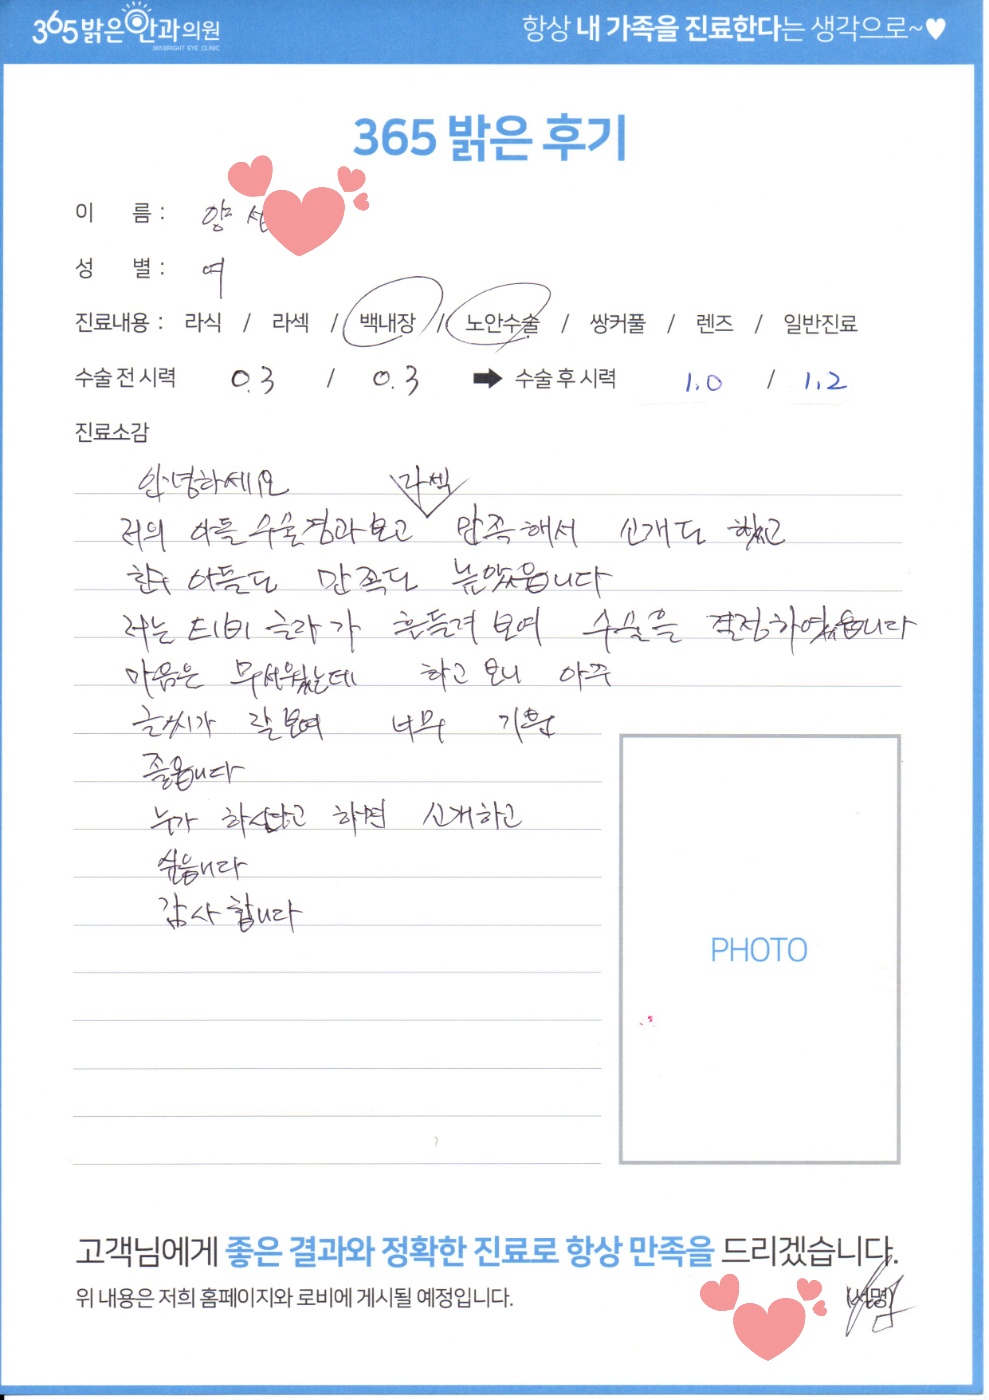 365밝은안과의원
365 BRIGHT EYE CLINIC
항상 내 가족을 진료한다는 생각으로~♥
365 밝은 후기
이 름 : 양
성 별 : 여
진료내용 : 라식 / 라섹 / 백내장 / 노안수술 / 쌍커풀 / 렌즈 / 일반진료
수술 전 시력 0.3 / 0.3 ➡ 수술 후 시력 1.0 / 1.2
진료소감
안녕하세요
저의 아들 라섹 수술 경과 보고 만족해서 소개도 했고
아들도 만족도 높았읍니다
저는 티비 글라가 흔들려 보여 수술을 결정하였읍니다
마음은 무서웠는데 하고 보니 아주
글씨가 잘 보여 너무 기분
좋읍니다
누가 하신다고 하면 소개하고
싶읍니다
감사 합니다
PHOTO
고객님에게 좋은 결과와 정확한 진료로 항상 만족을 드리겠습니다.
위 내용은 저희 홈페이지와 로비에 게시될 예정입니다.
(서명)